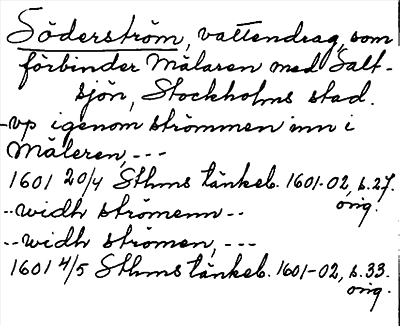 Söderström, vattendrag, som
förbinder Mälaren med Salt-
sjön, Stockholms stad.
-vp igenom strömmen inn i
Mäleren, ---
1601 20/4 Sthms tänkeb. 1601-02, s. 27.
orig.
--widh strömenn--
--widh strömen, ---
1601 4/5 Sthms tänkeb. 1601-02, s. 33.
orig.